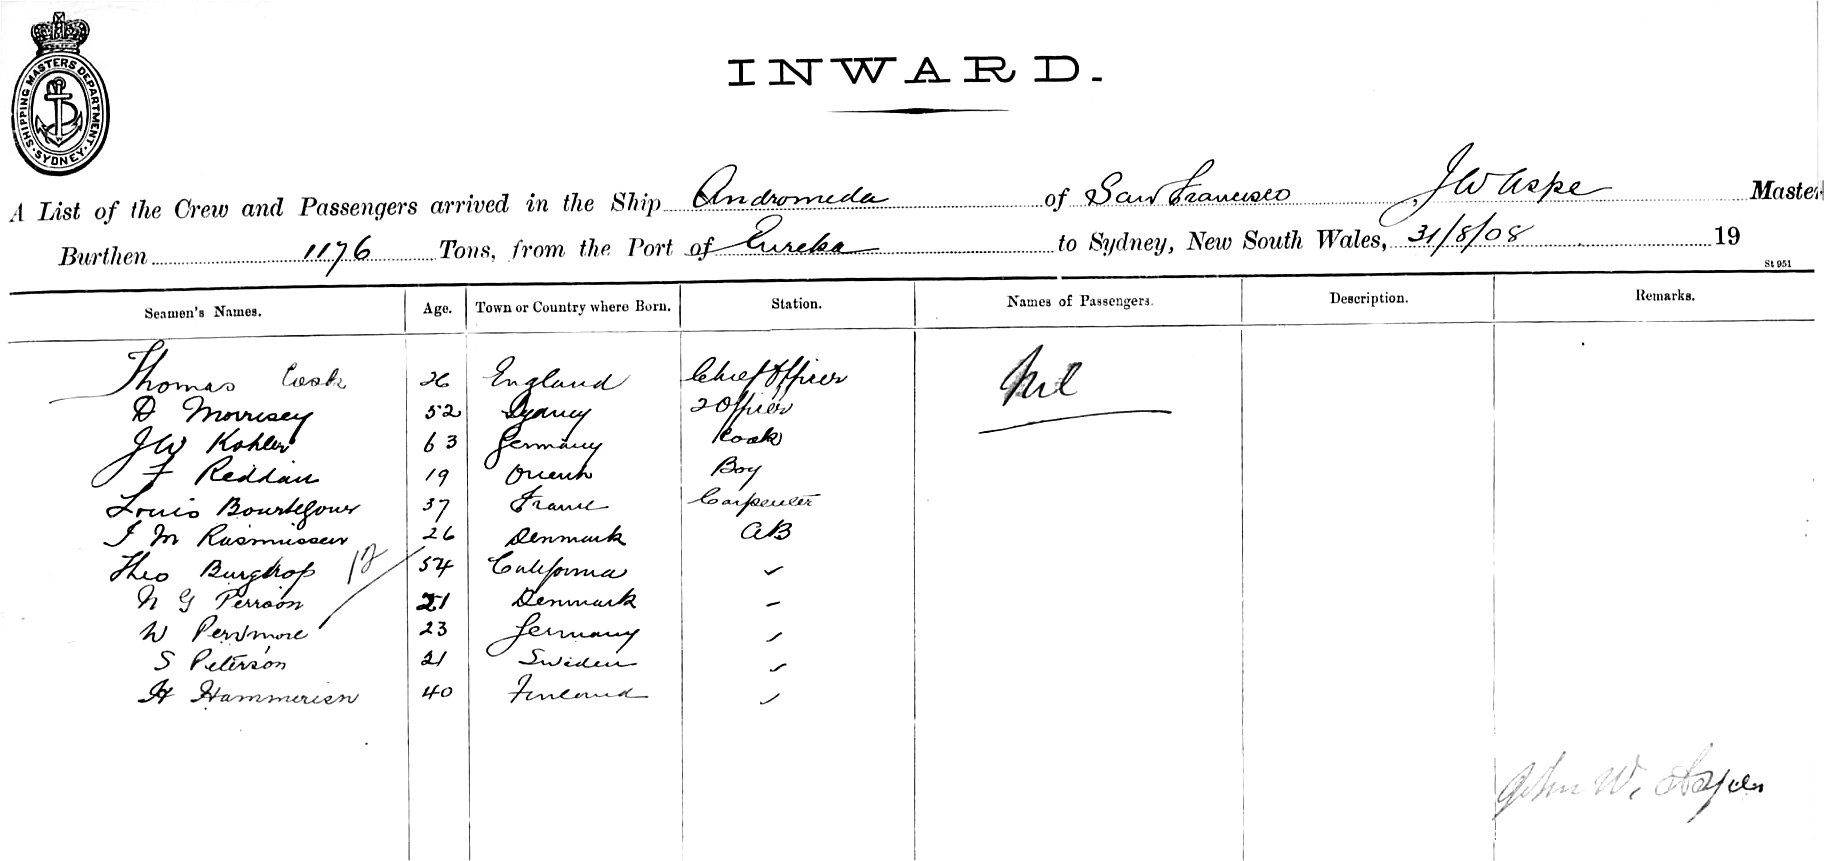 SHIPPING MASTERS DEPARTMENT
SYDNEY
INWARD.
A List of the Crew and Passengers arrived in the Ship Andromeda of San Francisco, J W Aspe Master
Burthen 1176 Tons, from the Port of Eureka to Sydney, New South Wales, 31/8/08 19
St 951
Seamen's Names. Age. Town or Country where Born. Station. Names of Passengers. Description. Remarks.
Thomas Cook 26 England Chief Officer Nil
D Morrisey 52 Sydney 2 Officer
J W Kohler 63 Germany Cook
F Reddan 19 Boy
Louis 37 France Carpenter
J M Rasmussen 26 Denmark AB
Theo Burgtrop 12 54 California
N G Persson 21 Denmark
W 23 Germany
S Peterson 21 Sweden
H 40 Finland
John W.